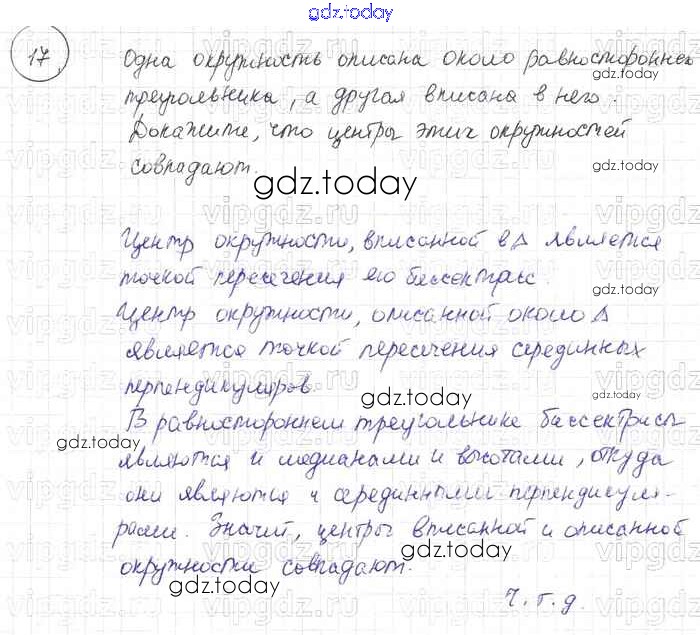 gdz.today
17
Одна окружность описана около равностороннего
gdz.today
треугольника, а другая вписана в него.
Докажите, что центры этих окружностей
gdz.today
совпадают.
gdz.today
Центр окружности, вписанной в Δ является
точкой пересечения его биссектрисс.
gdz.today
Центр окружности, описанной около Δ
является точкой пересечения серединных
перпендикуляров.
gdz.today
В равностороннем треугольнике биссектрисы
gdz.today
являются и медианами и высотами, откуда
они являются и серединными перпендикуля-
рами. Значит, центры вписанной и описанной
gdz.today
окружности совпадают.
gdz.today
Ч.т.д.